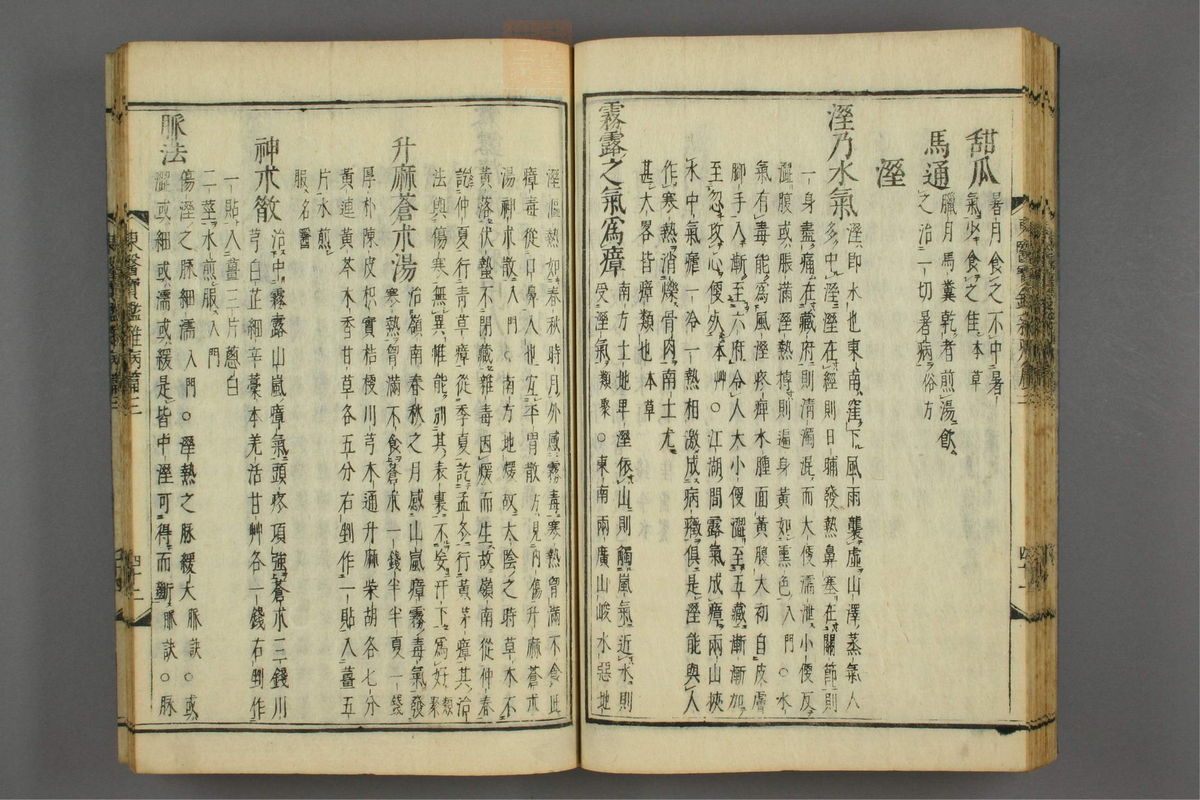 甜瓜 暑月食之不中暑
氣多食之佳本草
馬通 臘月馬糞乾者煎湯飲
之治一切暑病俗方
溼
溼乃水氣 溼卽水也東南窪下風雨襲虛山澤蒸氣人
多中溼溼在經則日晡發熱鼻塞在關節則
一身盡痛在藏府則清濁混而大便濡泄小便反
澀腹或脹滿溼熱搏則遍身黃如熏色入門○水
氣有毒能爲風溼疼痺水腫面黃腹大初自皮膚
脚手入漸至六府令人大小便澀至五藏漸漸加
至忽攻心便死本艸○江湖間露氣成瘴兩山挾
水中氣瘧一冷一熱相激成病癥俱是溼能與人
作寒熱消爍骨肉南土尤
甚大畧皆瘴類也 本草
霧露之氣爲瘴 南方土地卑溼依山則觸嵐氣近水則
受溼氣類聚○東南兩廣山峻水惡地
溼熱如春秋時月外感霧毒寒熱胷滿不食此
瘴毒從口鼻入也宜平胃散方見內傷升麻蒼朮
湯神朮散入門○南方地煖故太陰之時草木不
黃落伏蟄不閉藏雜毒因煖而生故嶺南從仲春
訖仲夏行青草瘴從季夏訖孟冬行黃茅瘴其治
法與傷寒無異惟能別其表裏不妄汗下爲好類聚
升麻蒼朮湯 治嶺南春秋之月感山嵐瘴霧毒氣發
寒熱胷滿不食蒼朮一錢半半夏一錢
厚朴陳皮枳實桔梗川芎木通升麻柴胡各七分
黃連黃芩木香甘草各五分右剉作一貼入薑五
片水煎
服 名醫
神朮散 治中霧露山嵐瘴氣頭疼項強蒼朮三錢川
芎白芷細辛藁本羌活甘艸各一錢右剉作
一貼入薑三片蔥白
二莖水煎服入門
脈法 傷溼之脈細濡入門○溼熱之脈緩大脈訣○或
澀或細或濡或緩是皆中溼可得而斷脈訣○脈